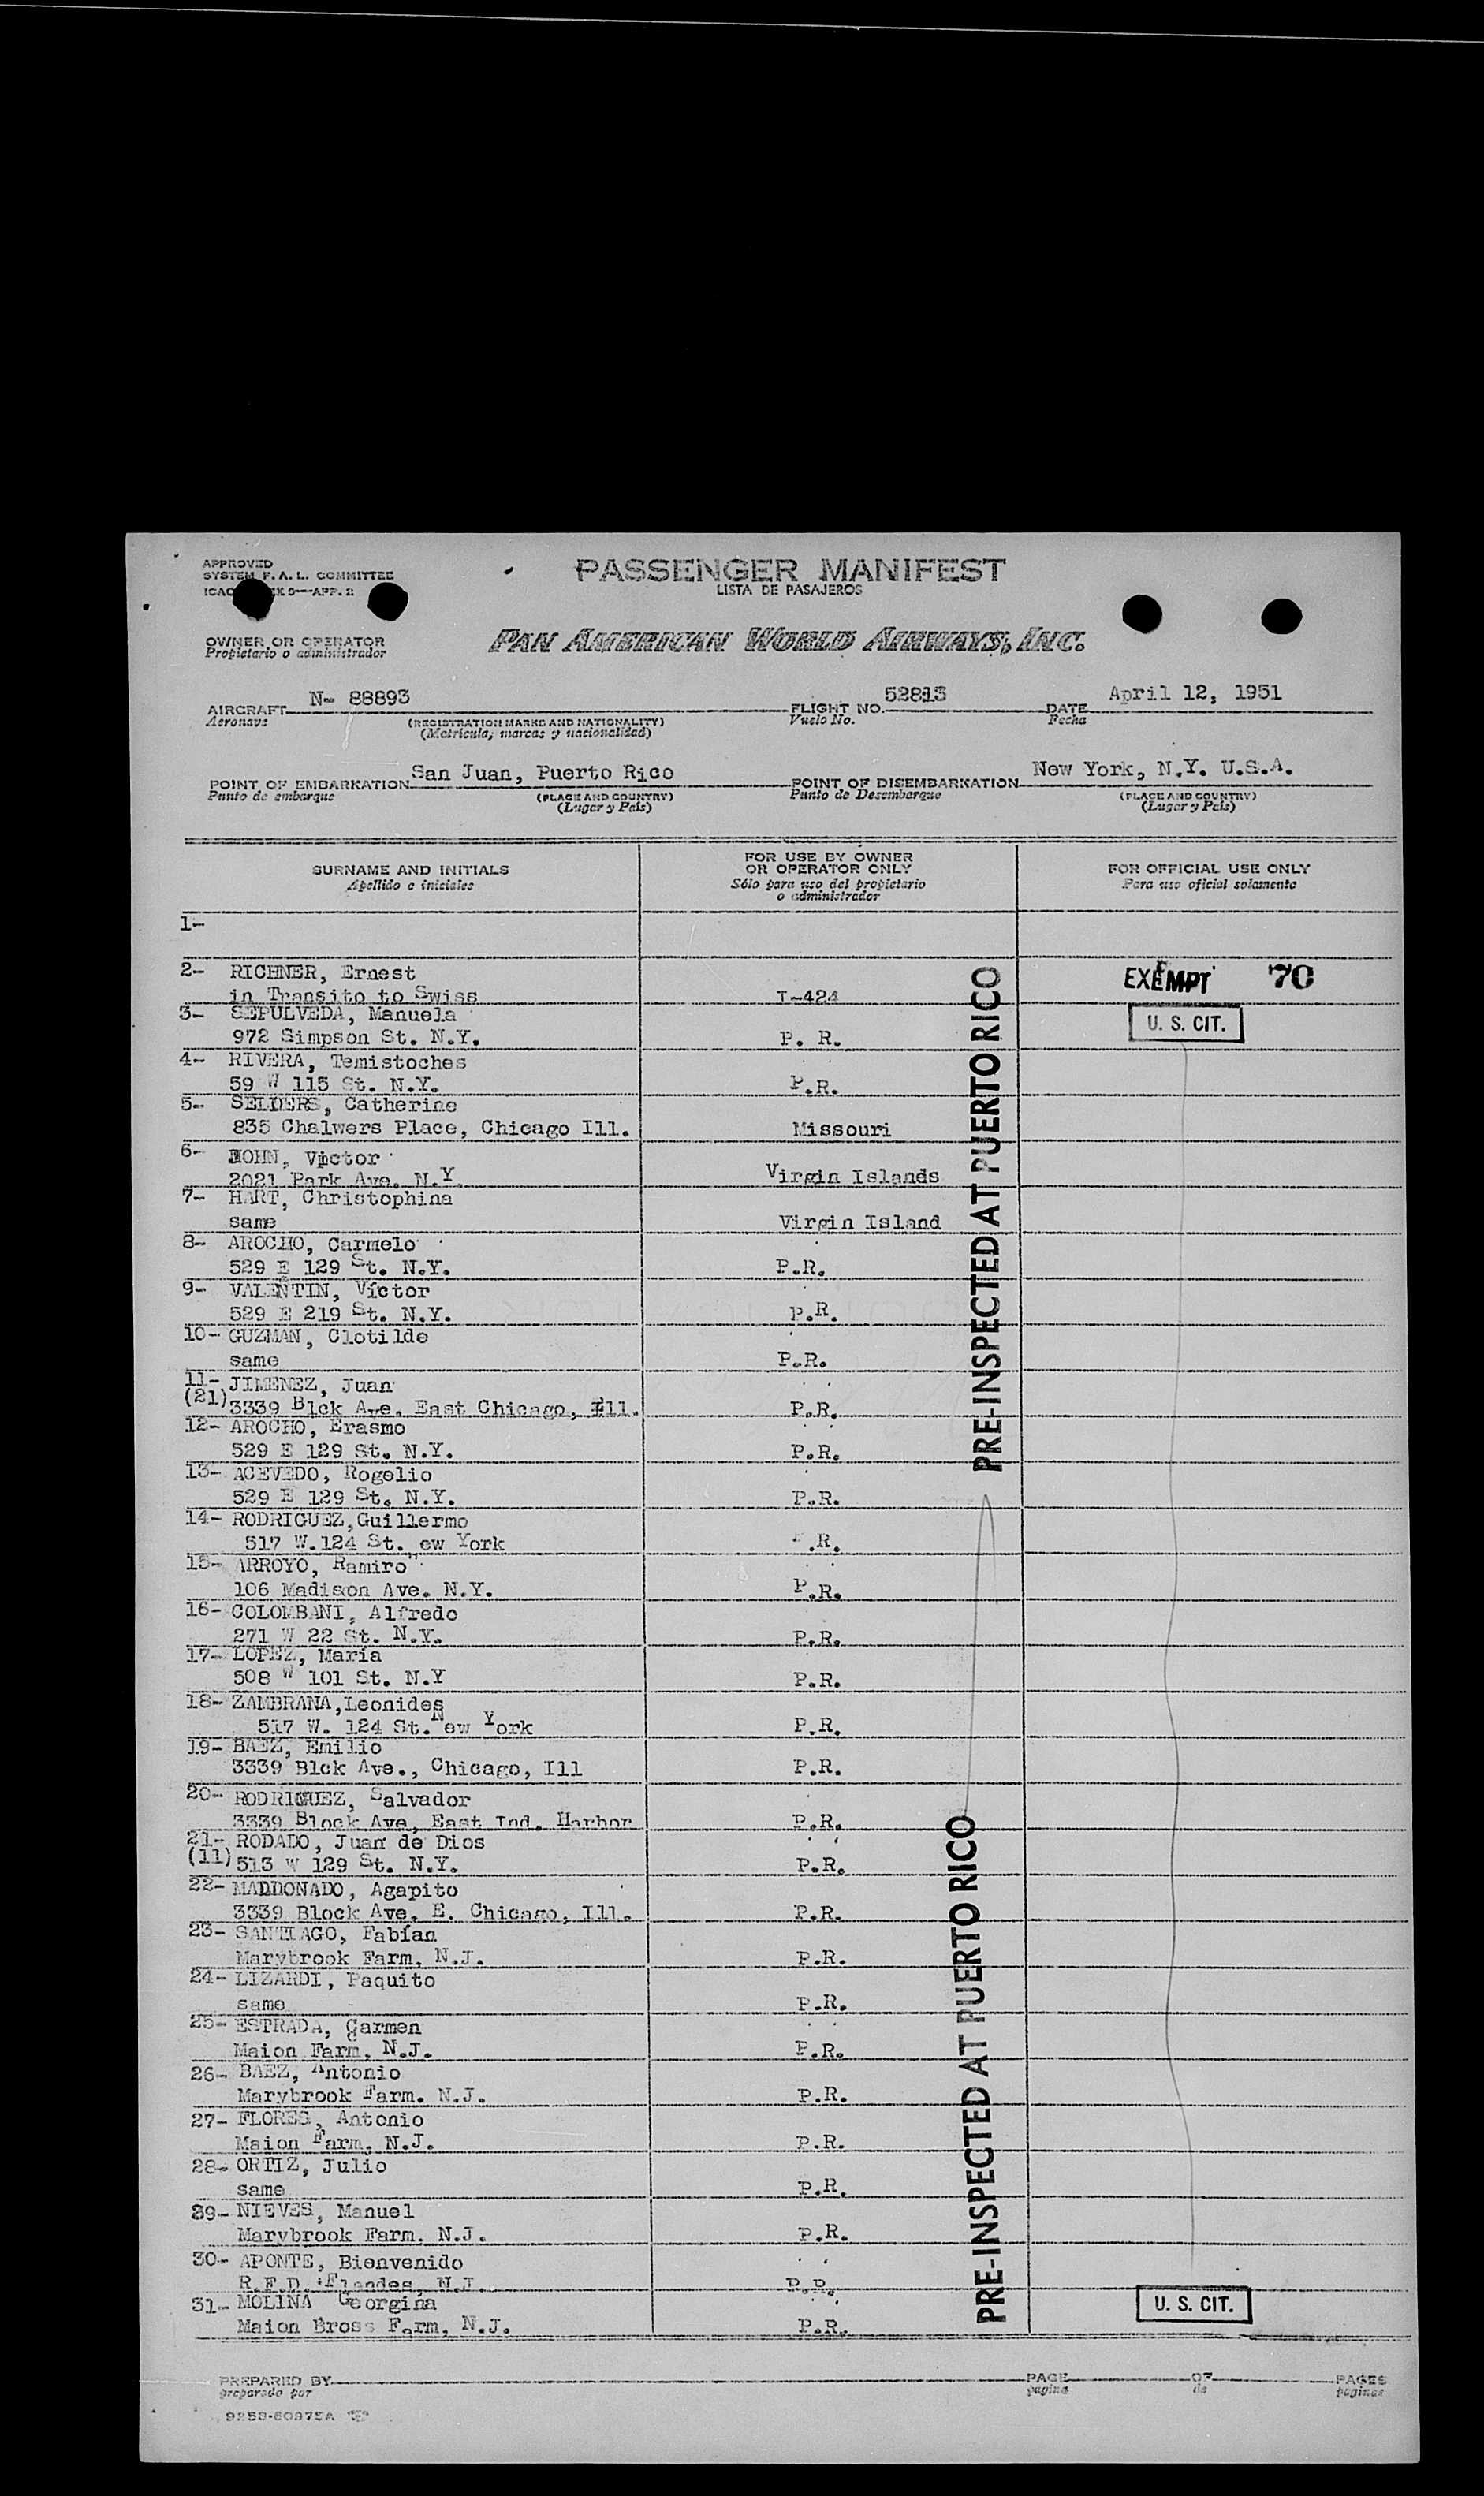 APPROVED
SYSTEM F. A. L. COMMITTEE
ICAO X 9—APP. 2
PASSENGER MANIFEST
LISTA DE PASAJEROS
OWNER OR OPERATOR
Propietario o administrador
PAN AMERICAN WORLD AIRWAYS, INC.
AIRCRAFT N- 88893 FLIGHT NO. 52813 DATE April 12, 1951
Aeronave (REGISTRATION MARKS AND NATIONALITY) Vuelo No. Fecha
(Matrícula, marcas y nacionalidad)
POINT OF EMBARKATION San Juan, Puerto Rico POINT OF DISEMBARKATION New York, N.Y. U.S.A.
Punto de embarque (PLACE AND COUNTRY) Punto de Desembarque (PLACE AND COUNTRY)
(Lugar y País) (Lugar y País)
SURNAME AND INITIALS FOR USE BY OWNER OR OPERATOR ONLY FOR OFFICIAL USE ONLY
Apellido e iniciales Sólo para uso del propietario o administrador Para uso oficial solamente
1-
2- RICHNER, Ernest EXEMPT 70
in Transito to Swiss T-424
3- SEPULVEDA, Manuela U. S. CIT.
972 Simpson St. N.Y. P. R.
4- RIVERA, Temistoches
59 W 115 St. N.Y. P.R.
5- SELDERS, Catherine
835 Chalwers Place, Chicago Ill. Missouri
6- JOHN, Victor
2021 Park Ave. N.Y. Virgin Islands
7- HART, Christophina
same Virgin Island
8- AROCHO, Carmelo
529 E 129 St. N.Y. P.R.
9- VALENTIN, Víctor
529 E 219 St. N.Y. P.R.
10- GUZMAN, Clotilde
same P.R.
11- JIMENEZ, Juan
(21) 3339 Blck Ave. East Chicago, Ill. P.R.
12- AROCHO, Erasmo
529 E 129 St. N.Y. P.R.
13- ACEVEDO, Rogelio
529 E 129 St. N.Y. P.R.
14- RODRIGUEZ,Guillermo
517 W.124 St. ew York P.R.
15- ARROYO, Ramiro
106 Madison Ave. N.Y. P.R.
16- COLOMBANI, Alfredo
271 W 22 St. N.Y. P.R.
17- LOPEZ, María
508 W 101 St. N.Y P.R.
18- ZAMBRANA,Leonides
517 W. 124 St. New York P.R.
19- BAEZ, Emilio
3339 Blck Ave., Chicago, Ill P.R.
20- RODRIGUEZ, Salvador
3339 Block Ave, East Ind. Harbor P.R.
21- RODADO, Juan de Dios
(11) 513 W 129 St. N.Y. P.R.
22- MALDONADO, Agapito
3339 Block Ave. E. Chicago, Ill. P.R.
23- SANTIAGO, Fabían
Marybrook Farm, N.J. P.R.
24- LIZARDI, Paquito
same P.R.
25- ESTRADA, Carmen
Maion Farm, N.J. P.R.
26- BAEZ, Antonio
Marybrook Farm. N.J. P.R.
27- FLORES, Antonio
Maion Farm, N.J. P.R.
28- ORTIZ, Julio
same P.R.
29- NIEVES, Manuel
Marybrook Farm. N.J. P.R.
30- APONTE, Bienvenido
R.F.D. Flandes, N.J. P.R.
31- MOLINA Georgina U. S. CIT.
Maion Bross Farm, N.J. P.R.
PRE-INSPECTED AT PUERTO RICO
PRE-INSPECTED AT PUERTO RICO
PREPARED BY PAGE OF PAGES
preparado por pagina de paginas